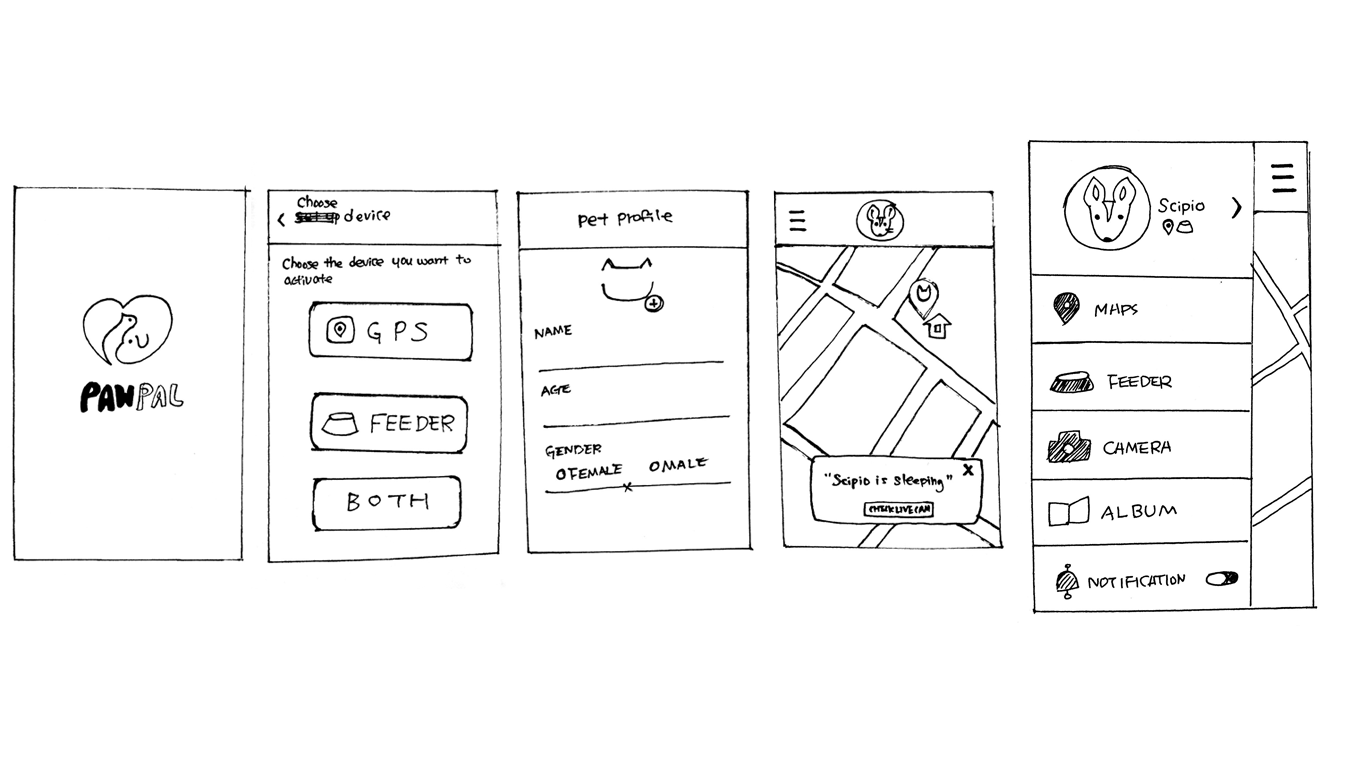 PAWPAL
Choose
device
Choose the device you want to
activate
GPS
FEEDER
BOTH
Pet Profile
NAME
AGE
GENDER
FEMALE MALE
"Scipio is sleeping" X
CHECK LIVE CAM
Scipio
MAPS
FEEDER
CAMERA
ALBUM
NOTIFICATION